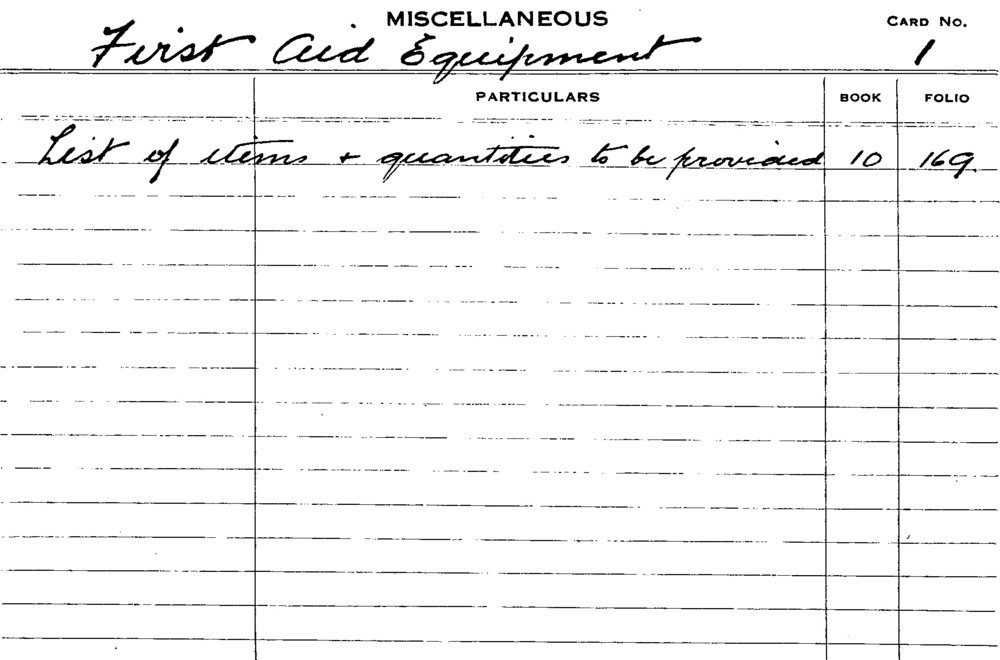 MISCELLANEOUS
CARD NO.
First Aid Equipment
1
PARTICULARS BOOK FOLIO
List of items + quantities to be provided 10 169